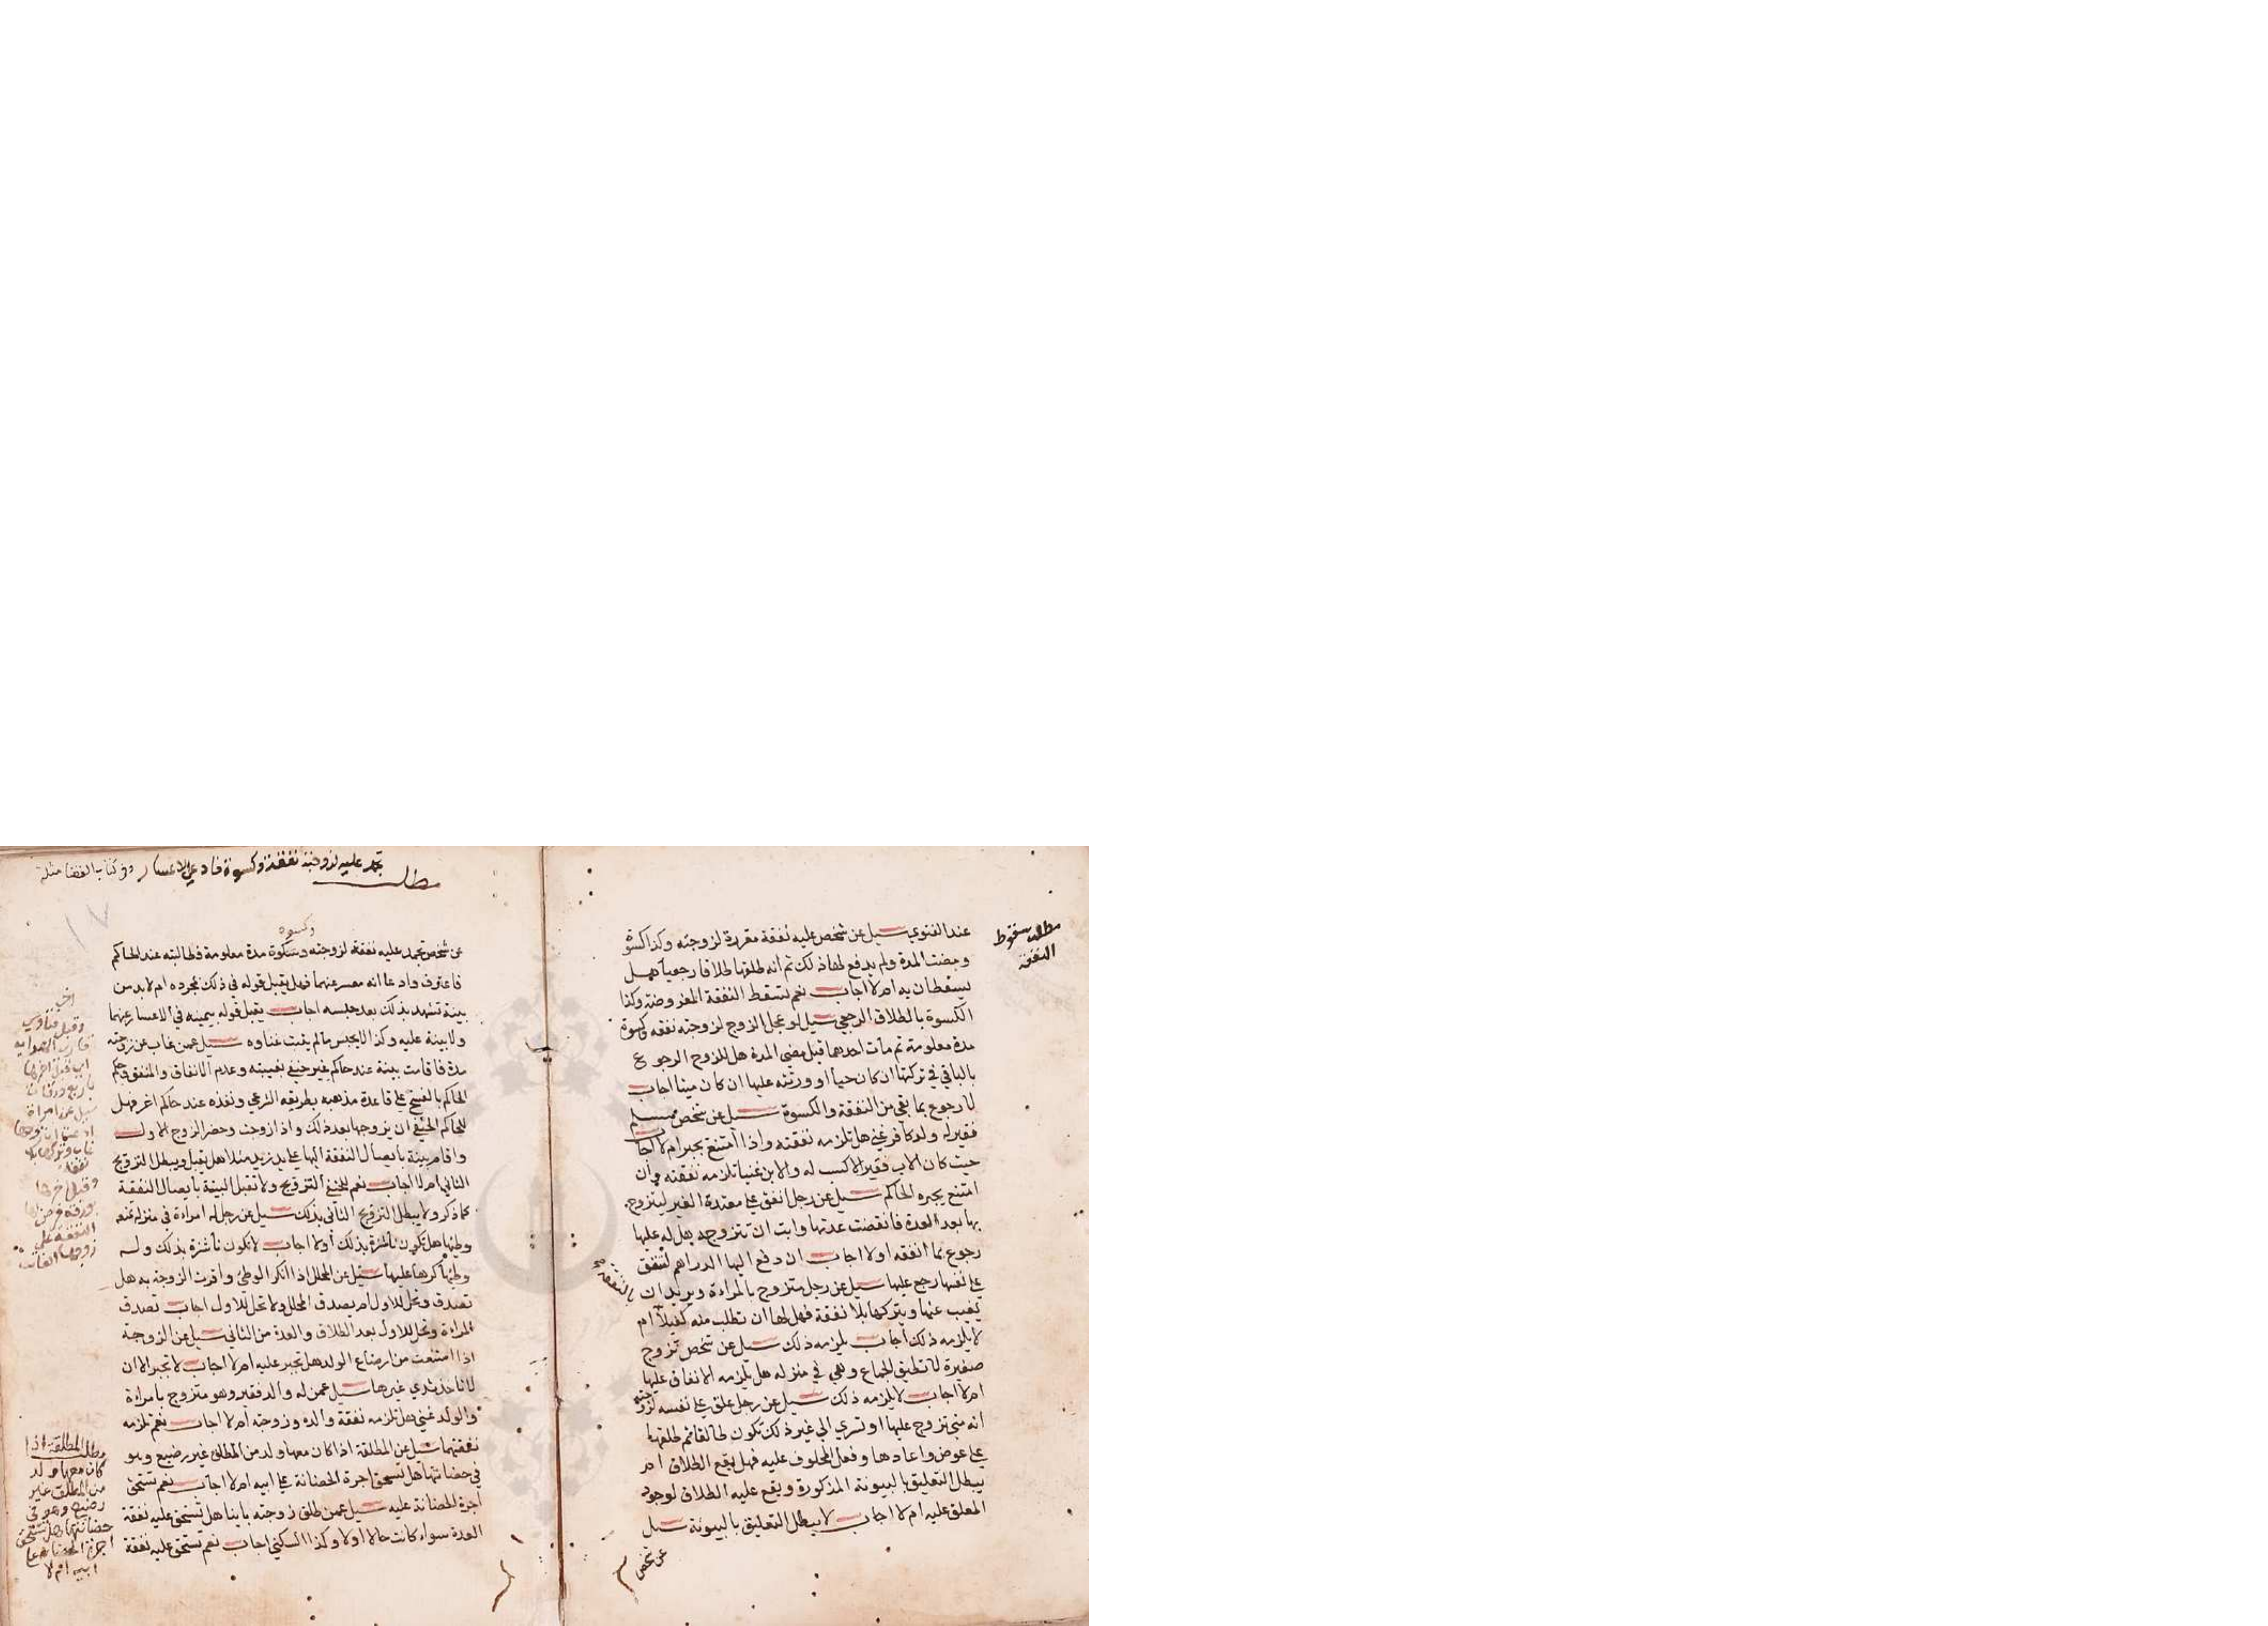 مطلب سقوط
النفقة
عند الفتوي سيل عن شخص عليه نفقة مقررة لزوجته وكذا كسوة
ومضت المدة ولم يدفع لها ذلك ثم انه طلقها طلاقا رجعيا هل
يسقطان به ام لا اجاب نعم تسقط النفقة المفروضة وكذا
الكسوة بالطلاق الرجعي سيل لو عجل الزوج لزوجته نفقه وكسوة
مدة معلومة ثم مات احدهما قبل مضي المدة هل للزوج الرجوع
بالباقي في تركتها ان كان حيا او ورثته عليها ان كان ميتا اجاب
لا رجوع بما بقي من النفقة والكسوة سيل عن شخص مسلم
فقير له ولد كافر غني هل تلزمه نفقته واذا امتنع يجبر ام لا اجاب
حيث كان الاب فقيرا لا كسب له والابن غنيا تلزمه نفقته وان
امتنع يجبره الحاكم سيل عن رجل انفق علي معتدة الغير ليتزوج
بها بعد العدة فانقضت عدتها وابت ان تتزوج به هل له عليها
رجوع بما انفقه اولا اجاب ان دفع اليها الدراهم لتنفق
علي نفسها رجع عليها سيل عن رجل متزوج بالمراءة ويريد ان
يغيب عنها ويتركها بلا نفقة فهل لها ان تطلب منه كفيلا ام
لا يلزمه ذلك اجاب يلزمه ذلك سيل عن شخص تزوج
صغيرة لا تطيق الجماع وهي في منزله هل يلزمه الانفاق عليها
ام لا اجاب لا يلزمه ذلك سيل عن رجل علق علي نفسه لزوجته
انه متي تزوج عليها او تسري الي غير ذلك تكون طالقا ثم طلقها
علي عوض واعادها وفعل المحلوف عليه فهل يقع الطلاق ام
يبطل التعليق بالبينونة المذكورة ويقع عليه الطلاق لوجود
المعلق عليه ام لا اجاب لا يبطل التعليق بالبينونة سيل
عن شخص
تجمد عليه لزوجته نفقة وكسوة فادعي الاعسار وفي كتاب القضا مثله
مطلب
وكسوه
عن شخص تجمد عليه نفقة لزوجته وسكوة مدة معلومة فطالبته عند الحاكم
فاعترف وادعا انه معسر عنهما فهل يقبل قوله في ذلك بمجرده ام لا بد من
بينة تشهد بذلك بعد حبسه اجاب يقبل قوله بيمينه في الاعسار عنهما
ولا بينة عليه وكذا لا يحبس ما لم يثبت غناوه سيل عمن غاب عن زوجته
مدة فاقامت بينة عند حاكم غير حنفي بغيبته وعدم الانفاق والمنفق وحكم
الحاكم بالفسخ علي قاعدة مذهبه بطريقه الشرعي ونفذه عند حاكم اخر فهل
للحاكم الحنفي ان يزوجها بعد ذلك واذا زوجت وحضر الزوج الاول
واقام بينة بايصال النفقة اليها علي يد زيد مثلا هل يقبل ويبطل التزويج
الثاني ام لا اجاب نعم للحنفي التزويج ولا تقبل البينة بايصال النفقة
كما ذكر ولا يبطل التزويج الثاني بذلك سيل عن رجل له امراءة في منزله تمنعه
وطيها هل تكون ناشزة بذلك أولا اجاب لا تكون ناشزة بذلك وله
وطيها كرها عليها سيل عن المحلل اذا انكر الوطي واقرت الزوجة به هل
تصدق وتحل للاول ام يصدق المحلل ولا تحل للاول اجاب تصدق
المراءة وتحل للاول بعد الطلاق والعدة من الثاني سيل عن الزوجة
اذا امتنعت من ارضاع الولد هل تجبر عليه ام لا اجاب لا تجبر الا ان
لا ياخذ ثدي غيرها سيل عمن له والد فقير وهو متزوج بامراءة
والولد غني هل تلزمه نفقة والده وزوجته ام لا اجاب نعم تلزمه
نفقتهما سيل عن المطلقة اذا كان معها ولد من المطلق غير رضيع وهو
في حضانتها هل تستحق اجرة الحضانة علي ابيه ام لا اجاب نعم تستحق
اجرة الحضانة عليه سيل عمن طلق زوجته باينا هل تستحق عليه نفقة
العدة سواء كانت حالا اولا وكذا السكني اجاب نعم تستحق عليه نفقة
سيل عن امراة
ادعت ان زوجها
غاب وتركها بلا
نفقة
النفقة علي
زوجها الغايب
مطلب المطلقة اذا
كان معها ولد
من المطلق غير
رضيع وهو في
حضانتها هل تستحق
اجرة الحضانة علي
ابيه ام لا